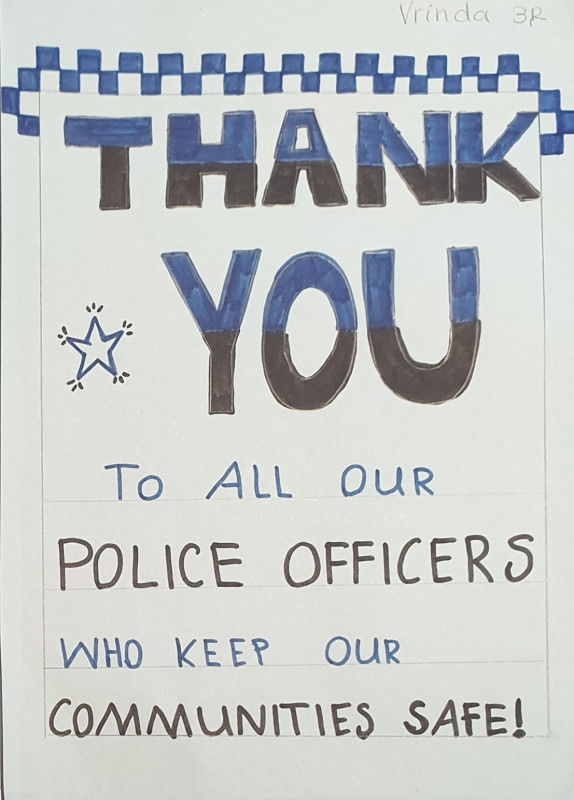 Vrinda 3R
THANK
YOU
TO ALL OUR
POLICE OFFICERS
WHO KEEP OUR
COMMUNITIES SAFE!